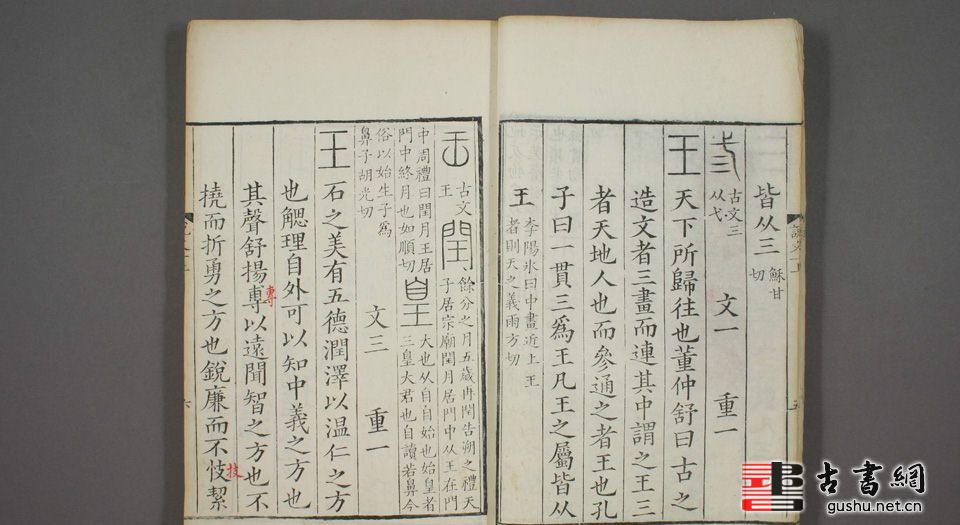 皆从三穌甘切
弎古文三从弋
文一　重一
王天下所歸往也董仲舒曰古之
造文者三畫而連其中謂之王三
者天地人也而參通之者王也孔
子曰一貫三爲王凡王之屬皆从
王李陽冰曰中畫近上王者則天之義雨方切
古文王閏餘分之月五歲再閏告朔之禮天子居宗廟閏月居門中从王在門
中周禮曰閏月王居門中終月也如順切皇大也从自自始也始皇者三皇大君也自讀若鼻今
俗以始生子爲鼻子胡光切
文三　重一
王石之美有五德潤澤以溫仁之方
也䚡理自外可以知中義之方也
其聲舒揚專以遠聞智之方也不
專
撓而折勇之方也銳廉而不忮絜
技
五
六
古書網
gushu.net.cn